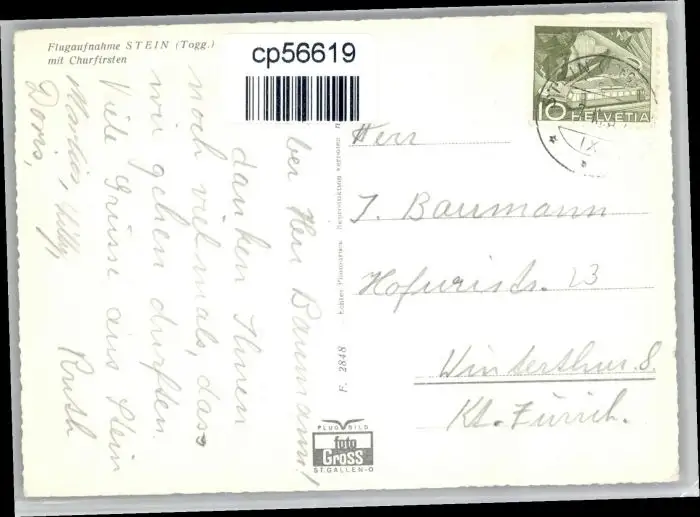 Flugaufnahme STEIN (Togg.)
mit Churfirsten
cp56619
ber Herr Baumann!
danken Ihnen
noch vielmals, dass
wir gehen durften.
Viele Grüsse aus Stein
Ruth
Doris,
F. 2848
Echtes Photo
FLUGBILD
foto
Gross
ST. GALLEN-O
10
HELVETIA
STEIN
IX
Herr
J. Baumann
Hofwiesstr. 23
Winterthur 8.
Kt. Zürich.